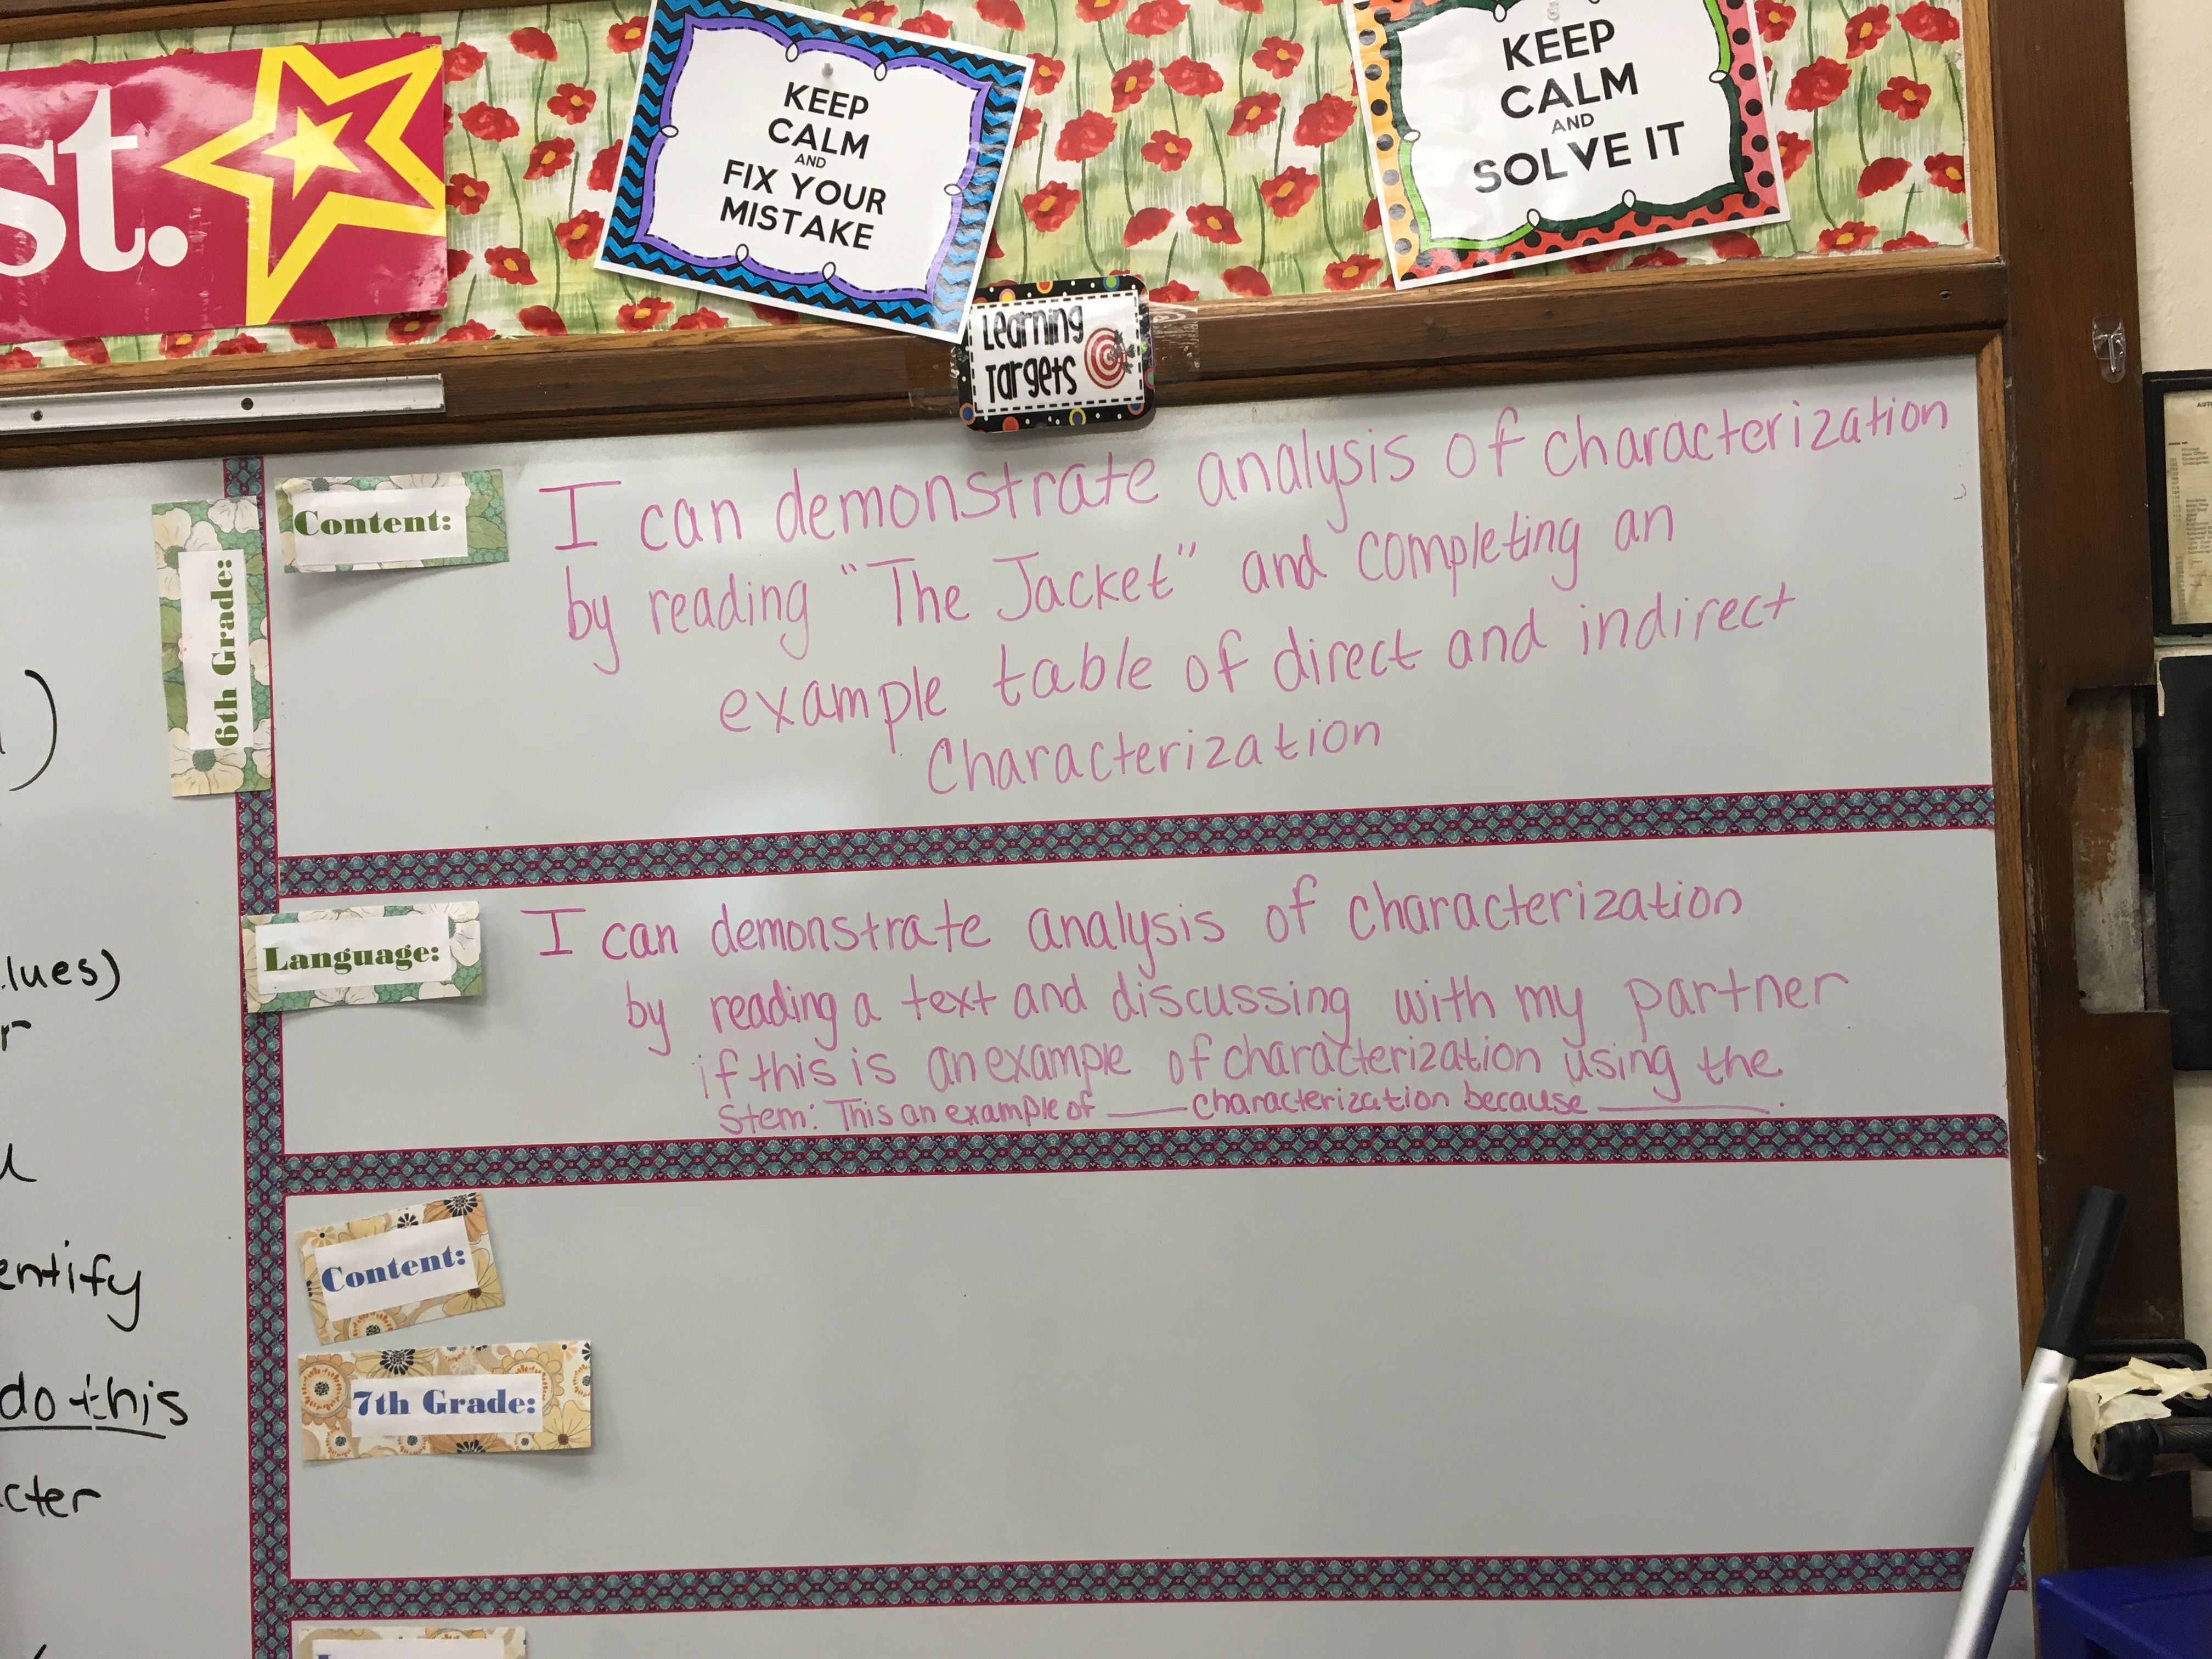 st.
KEEP
CALM
AND
FIX YOUR
MISTAKE
KEEP
CALM
AND
SOLVE IT
Learning
Targets
6th Grade:
Content:
I can demonstrate analysis of characterization
by reading "The Jacket" and completing an
example table of direct and indirect
Characterization
Language:
I can demonstrate analysis of characterization
by reading a text and discussing with my partner
if this is an example of characterization using the
Stem: This an example of ____ characterization because ________.
Content:
7th Grade:
lues)
r
entify
do this
cter